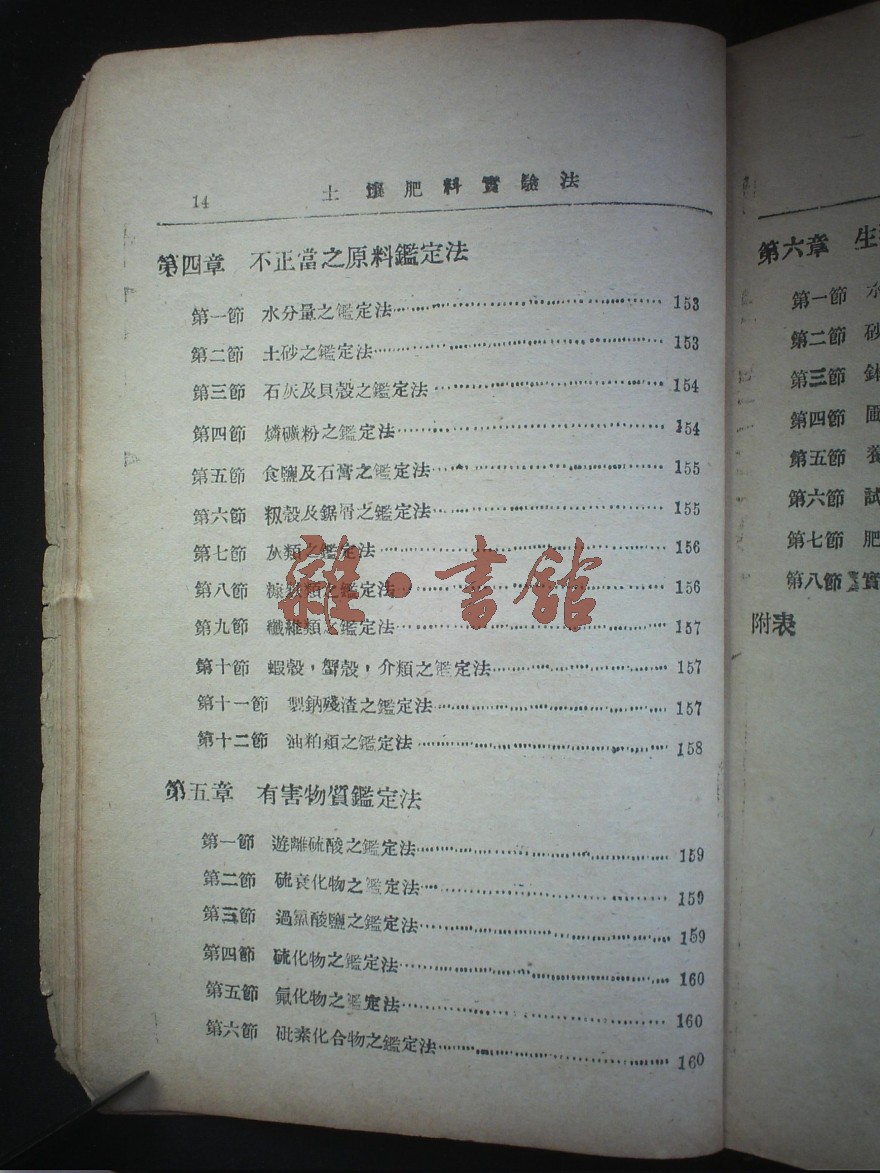 14 土壤肥料實驗法
第四章 不正當之原料鑑定法
第一節 水分量之鑑定法 153
第二節 土砂之鑑定法 153
第三節 石灰及貝殼之鑑定法 154
第四節 燐礦粉之鑑定法 154
第五節 食鹽及石膏之鑑定法 155
第六節 籾殼及鋸屑之鑑定法 155
第七節 灰類之鑑定法 156
第八節 類之鑑定法 156
第九節 纖維類之鑑定法 157
第十節 蝦殼，蟹殼，介類之鑑定法 157
第十一節 製鈉殘渣之鑑定法 157
第十二節 油粕類之鑑定法 158
第五章 有害物質鑑定法
第一節 遊離硫酸之鑑定法 159
第二節 硫衰化物之鑑定法 159
第三節 過氯酸鹽之鑑定法 159
第四節 硫化物之鑑定法 160
第五節 氟化物之鑑定法 160
第六節 砒素化合物之鑑定法 160
雜·書館
第六章 生
第一節
第二節 砂
第三節
第四節
第五節 養
第六節 試
第七節 肥
第八節 實
附表